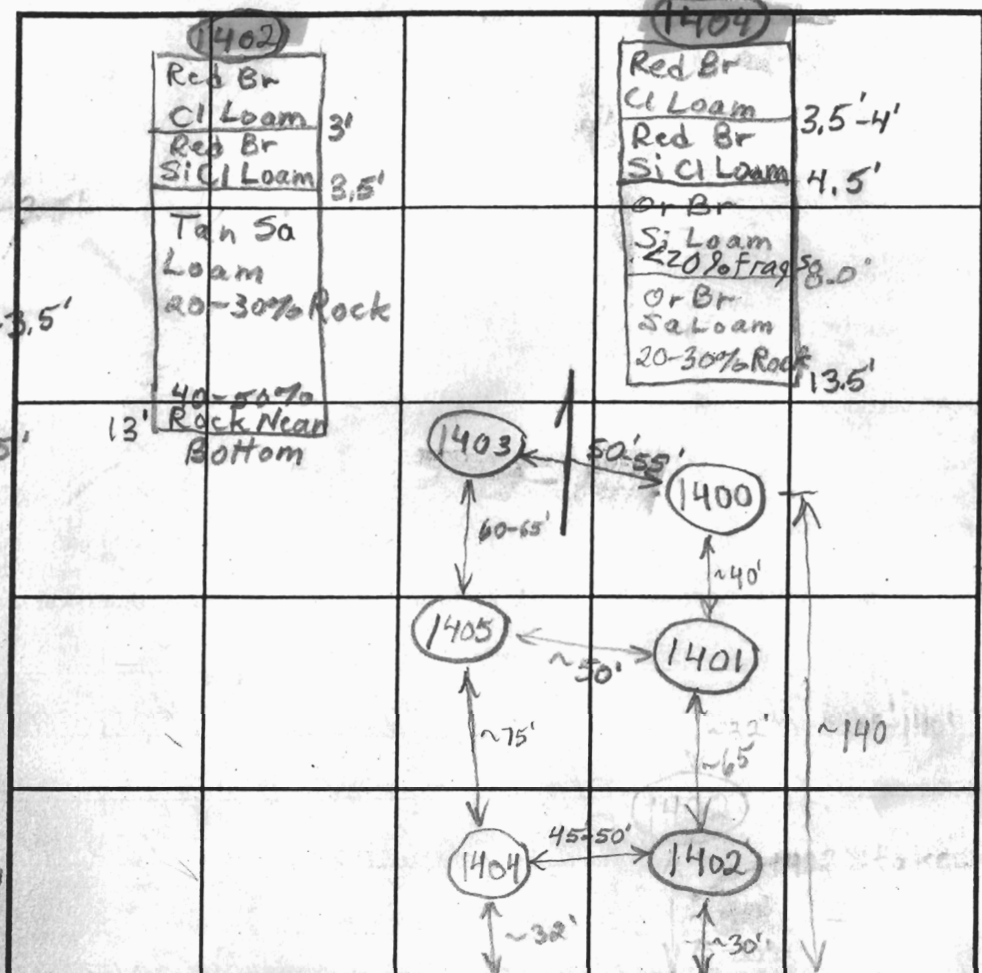 1402
Red Br
Cl Loam
3'
Red Br
Si Cl Loam
3.5'
Tan Sa
Loam
20-30% Rock
40-50%
Rock Near
13'
Bottom
1404
Red Br
Cl Loam
3.5'-4'
Red Br
Si Cl Loam
4.5'
Or Br
Si Loam
<20% frags
8.0'
Or Br
Sa Loam
20-30% Rock
13.5'
-3.5'
5'
1403
50'-55'
1400
60-65'
~40'
1405
~50'
1401
~75'
~65
~140
1404
45-50'
1402
~32'
~30'